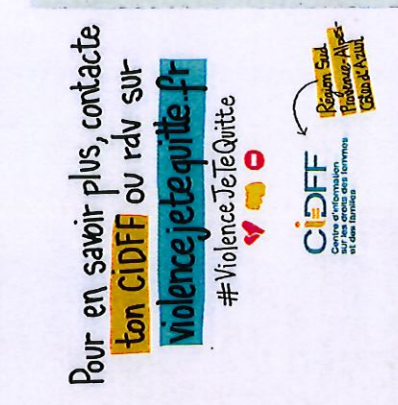 Pour en savoir plus, contacte
ton CIDFF ou rdv sur
violencejetequitte.fr
#ViolenceJeTeQuitte
CIDFF
Centre d'information
sur les droits des femmes
et des familles
Région Sud
Provence-Alpes-
Côte d'Azur